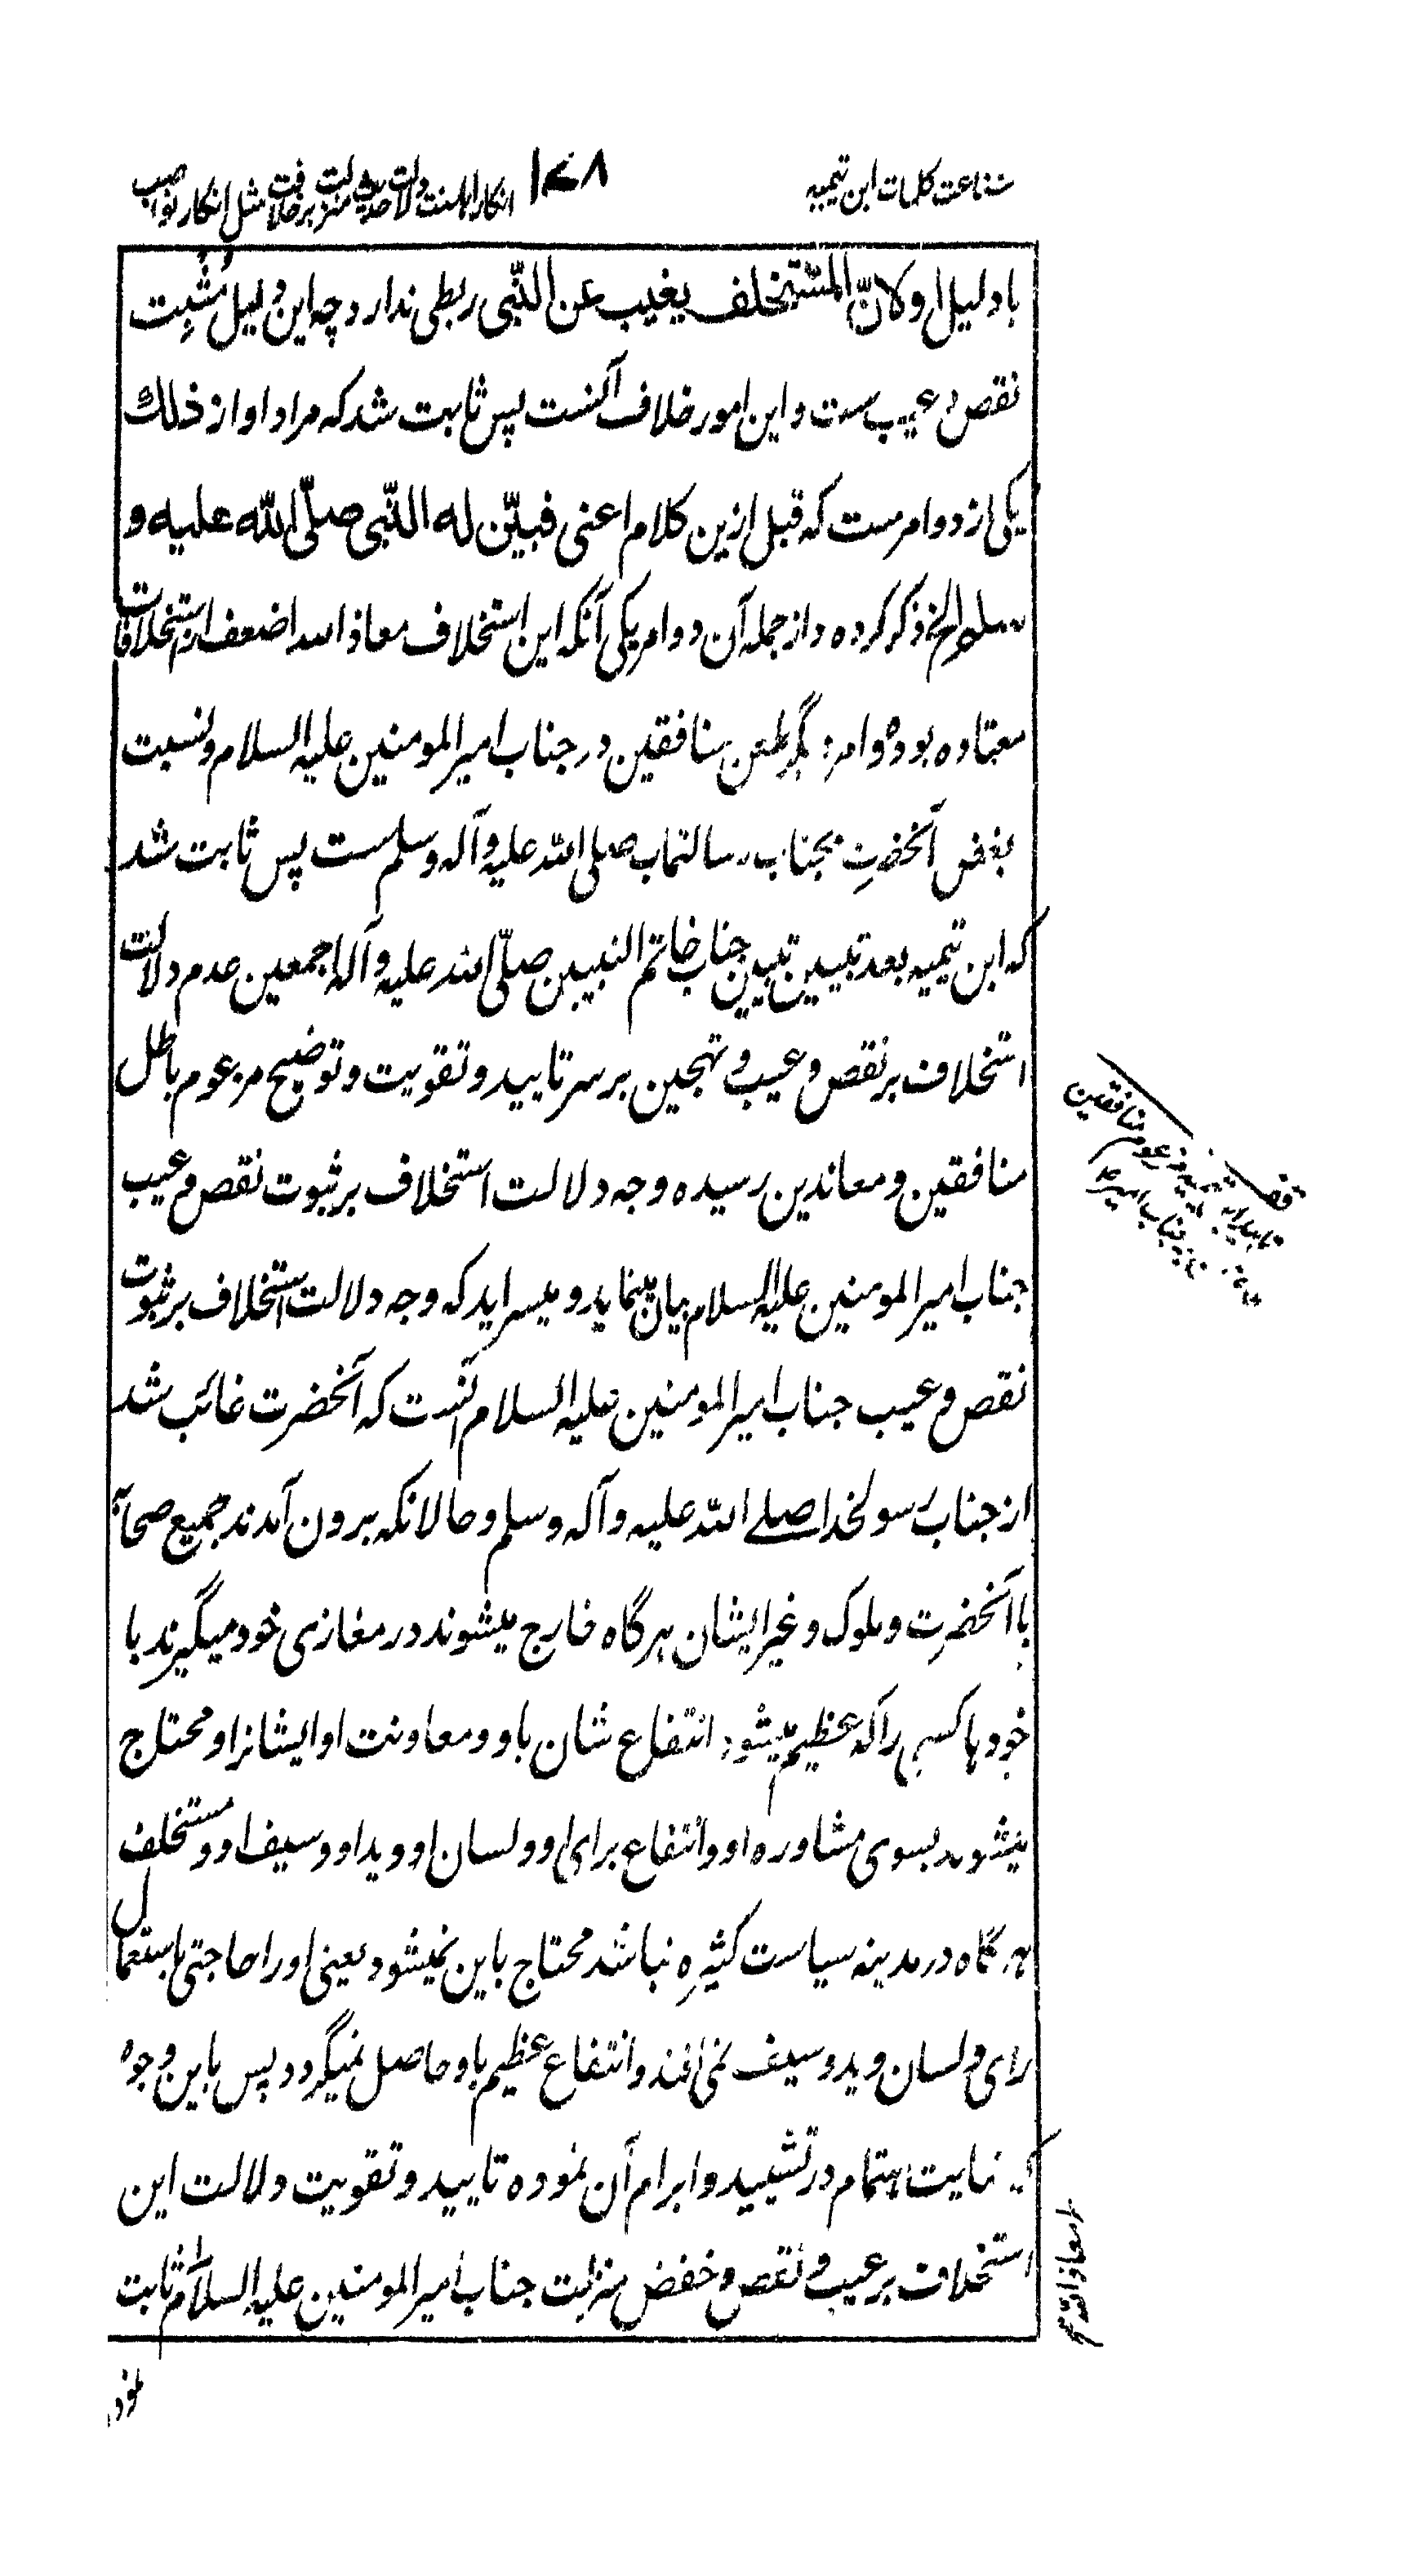 شناعت کلمات ابن تیمیه
۱۷۸
انکار اهلسنت دلالت حدیث منزلت بر خلافت مثل انکار نواصب
با دلیل او و لانّ المستخلف یغیب عن النّبی ربطی ندارد چه این دلیل مُثبِت
نقص و عیب ست و این امور خلاف آنست پس ثابت شد که مراد او از ذلك
یکی از دو امرست که قبل ازین کلام اعنی فبیّن له النّبی صلّی الله علیه و
سلم الخ ذکر کرده و از جمله آن دو امر یکی آنکه این استخلاف معاذ الله اضعف از استخلافات
معتاده بوده و امر دیگر طعن منافقین در جناب امیر المومنین علیه السلام و نسبت
بغض آنحضرت بجناب رسالتماب صلی الله علیه و آله و سلم ست پس ثابت شد
که ابن تیمیه بعد تبیین تبیین جناب خاتم النبیین صلّی الله علیه و آله اجمعین عدم دلالت
استخلاف بر نقص و عیب و تهجین بر سر تایید و تقویت و توضیح مزعوم باطل
منافقین و معاندین رسیده وجه دلالت استخلاف بر ثبوت نقص و عیب
جناب امیر المومنین علیه السلام بیان مینماید و میسراید که وجه دلالت استخلاف بر ثبوت
نقص و عیب جناب امیر المومنین علیه السلام آنست که آنحضرت غائب شد
از جناب رسولخدا صلے الله علیه و آله و سلم و حالانکه برون آمدند جمیع صحابه
با آنحضرت و ملوک و غیر ایشان هرگاه خارج میشوند در مغازی خود میگیرند با
خودها کسی را که عظیم میشود انتفاع شان باو و معاونت او ایشانرا و محتاج
میشوند بسوی مشاوره او و انتفاع برای او و لسان او و ید او و سیف او و مستخلف
هرگاه در مدینه سیاست کثیره نباشد محتاج باین نمیشود یعنی او را حاجتی باستعمال
رای و لسان و ید و سیف نمی افتد و انتفاع عظیم باو حاصل نمیگردد پس باین وجوه
که نهایت اهتمام در تشیید و ابرام آن نموده تایید و تقویت دلالت این
استخلاف بر عیب و نقص و خفض منزلت جناب امیر المومنین علیه السلام ثابت
نمود
تایید ابن تیمیه مزعوم منافقین
جناب امیر ع
معاذ الله